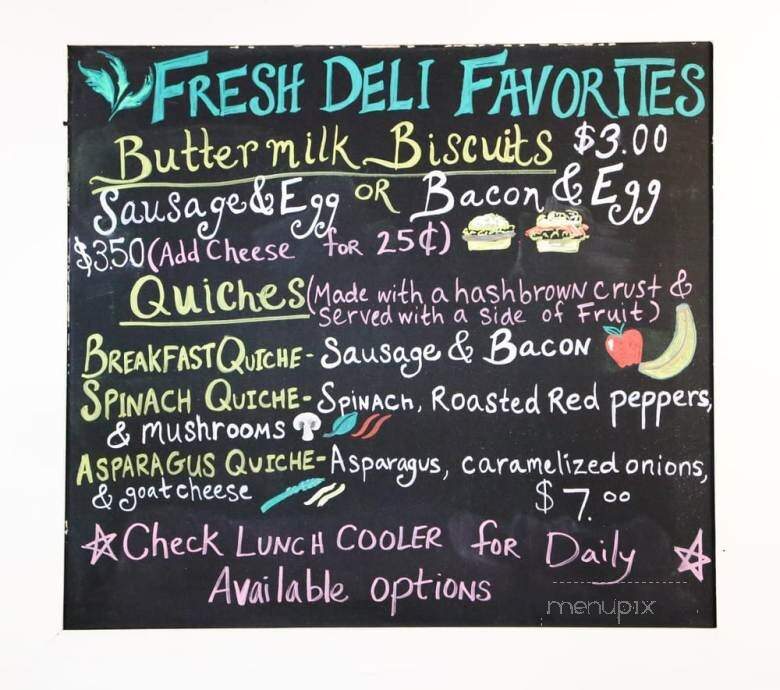 FRESH DELI FAVORITES
Buttermilk Biscuits $3.00
Sausage & Egg OR Bacon & Egg
$3.50 (Add Cheese for 25¢)
Quiches (Made with a hashbrown crust &
Served with a side of Fruit)
BREAKFAST QUICHE - Sausage & Bacon
SPINACH QUICHE - Spinach, Roasted Red peppers,
& mushrooms
ASPARAGUS QUICHE - Asparagus, caramelized onions,
& goat cheese
$7.00
Check Lunch Cooler for Daily
Available options
menupix